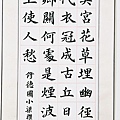 吳宮花草埋幽徑
代衣冠成古丘日
鄉關何處是煙波
上使人愁
修德國小葉